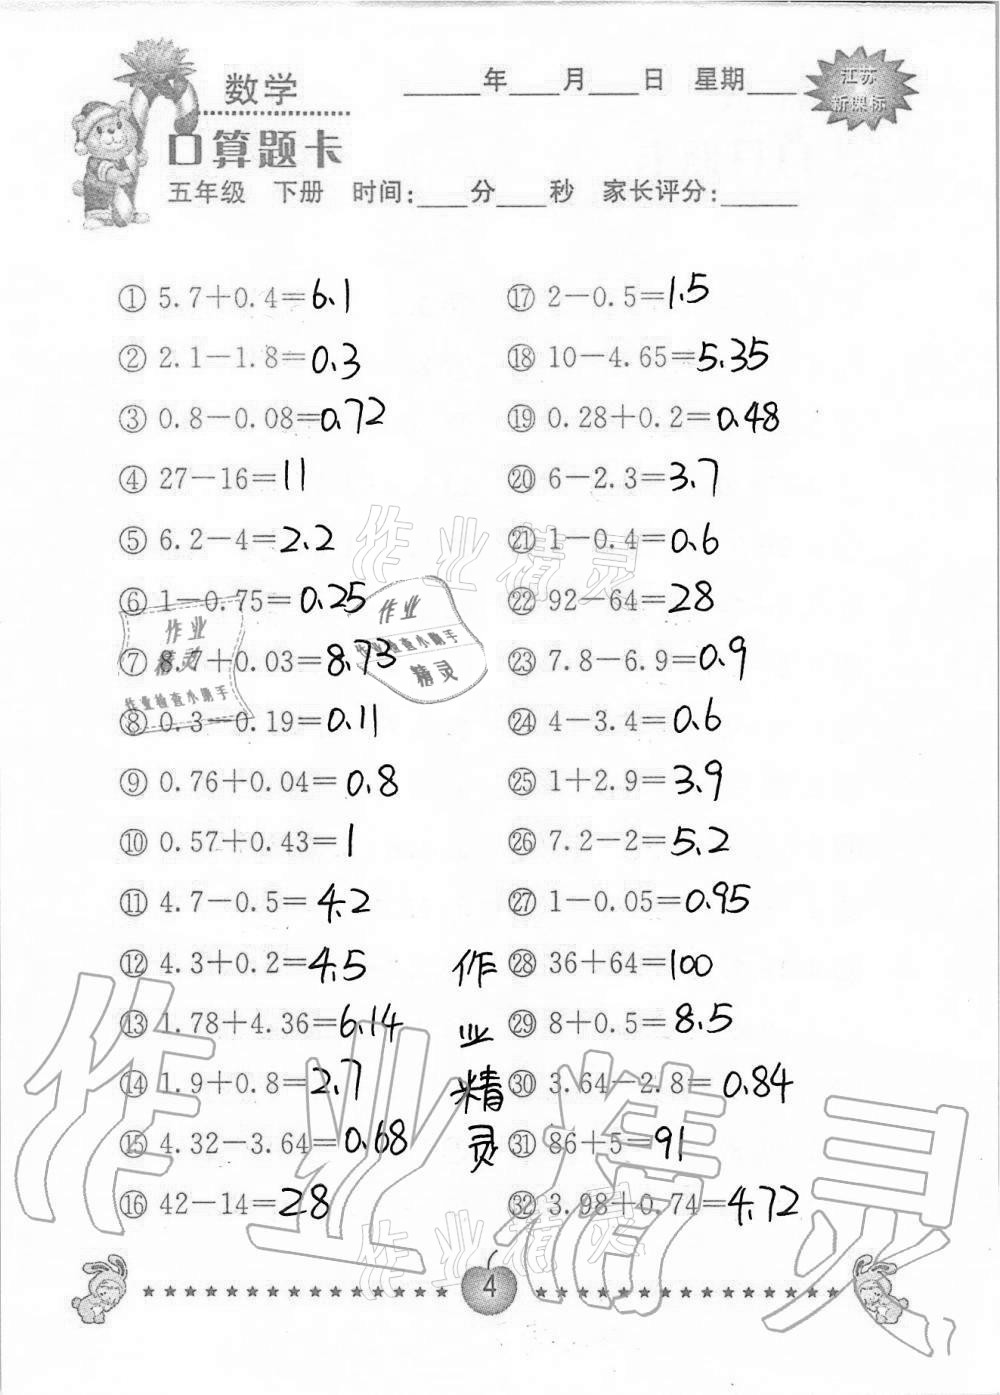 数学
____年____月____日 星期____
江苏
新课标
口算题卡
五年级 下册 时间:____分____秒 家长评分:______
① 5.7+0.4=6.1
② 2.1-1.8=0.3
③ 0.8-0.08=0.72
④ 27-16=11
⑤ 6.2-4=2.2
⑥ 1-0.75=0.25
⑦ 8. +0.03=8.73
⑧ 0.3-0.19=0.11
⑨ 0.76+0.04=0.8
⑩ 0.57+0.43=1
⑪ 4.7-0.5=4.2
⑫ 4.3+0.2=4.5
⑬ 1.78+4.36=6.14
⑭ 1.9+0.8=2.7
⑮ 4.32-3.64=0.68
⑯ 42-14=28
⑰ 2-0.5=1.5
⑱ 10-4.65=5.35
⑲ 0.28+0.2=0.48
⑳ 6-2.3=3.7
㉑ 1-0.4=0.6
㉒ 92-64=28
㉓ 7.8-6.9=0.9
㉔ 4-3.4=0.6
㉕ 1+2.9=3.9
㉖ 7.2-2=5.2
㉗ 1-0.05=0.95
㉘ 36+64=100
㉙ 8+0.5=8.5
㉚ 3.64-2.8=0.84
㉛ 86+5=91
㉜ 3.98+0.74=4.72
作业精灵
作业
精灵
作业检查小助手
作业
作业检查小助手
精灵
作
业
精
灵
作业精灵
作业精灵
4